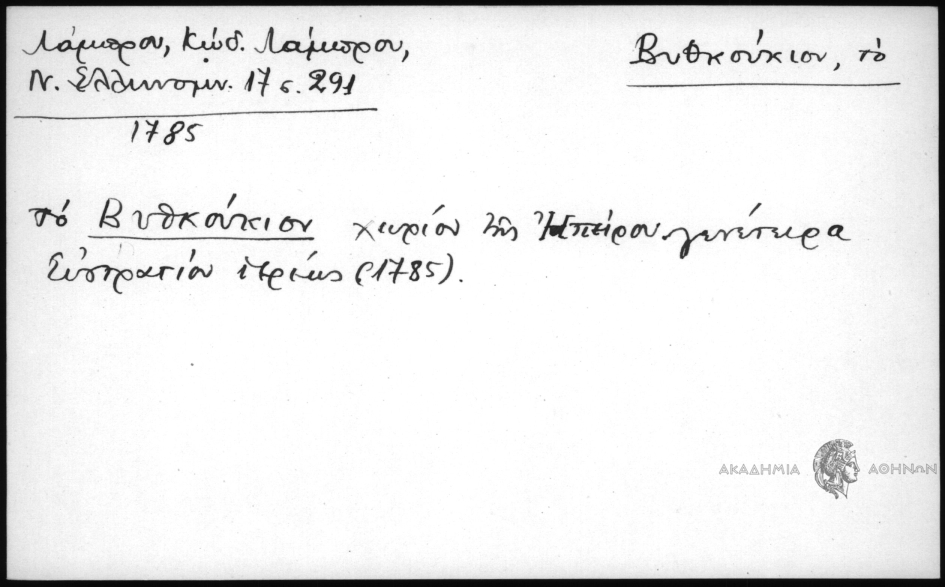 Λάμπρου, Κώδ. Λάμπρου,
Ν. Ἑλληνομν. 17 σ. 291
1785
Βυθκούκιον, τὸ
τὸ Βυθκούκιον χωρίον τῆς Ἠπείρου γενέτειρα
Εὐστρατίου ἱερέως (1785).
ΑΚΑΔΗΜΙΑ ΑΘΗΝΩΝ